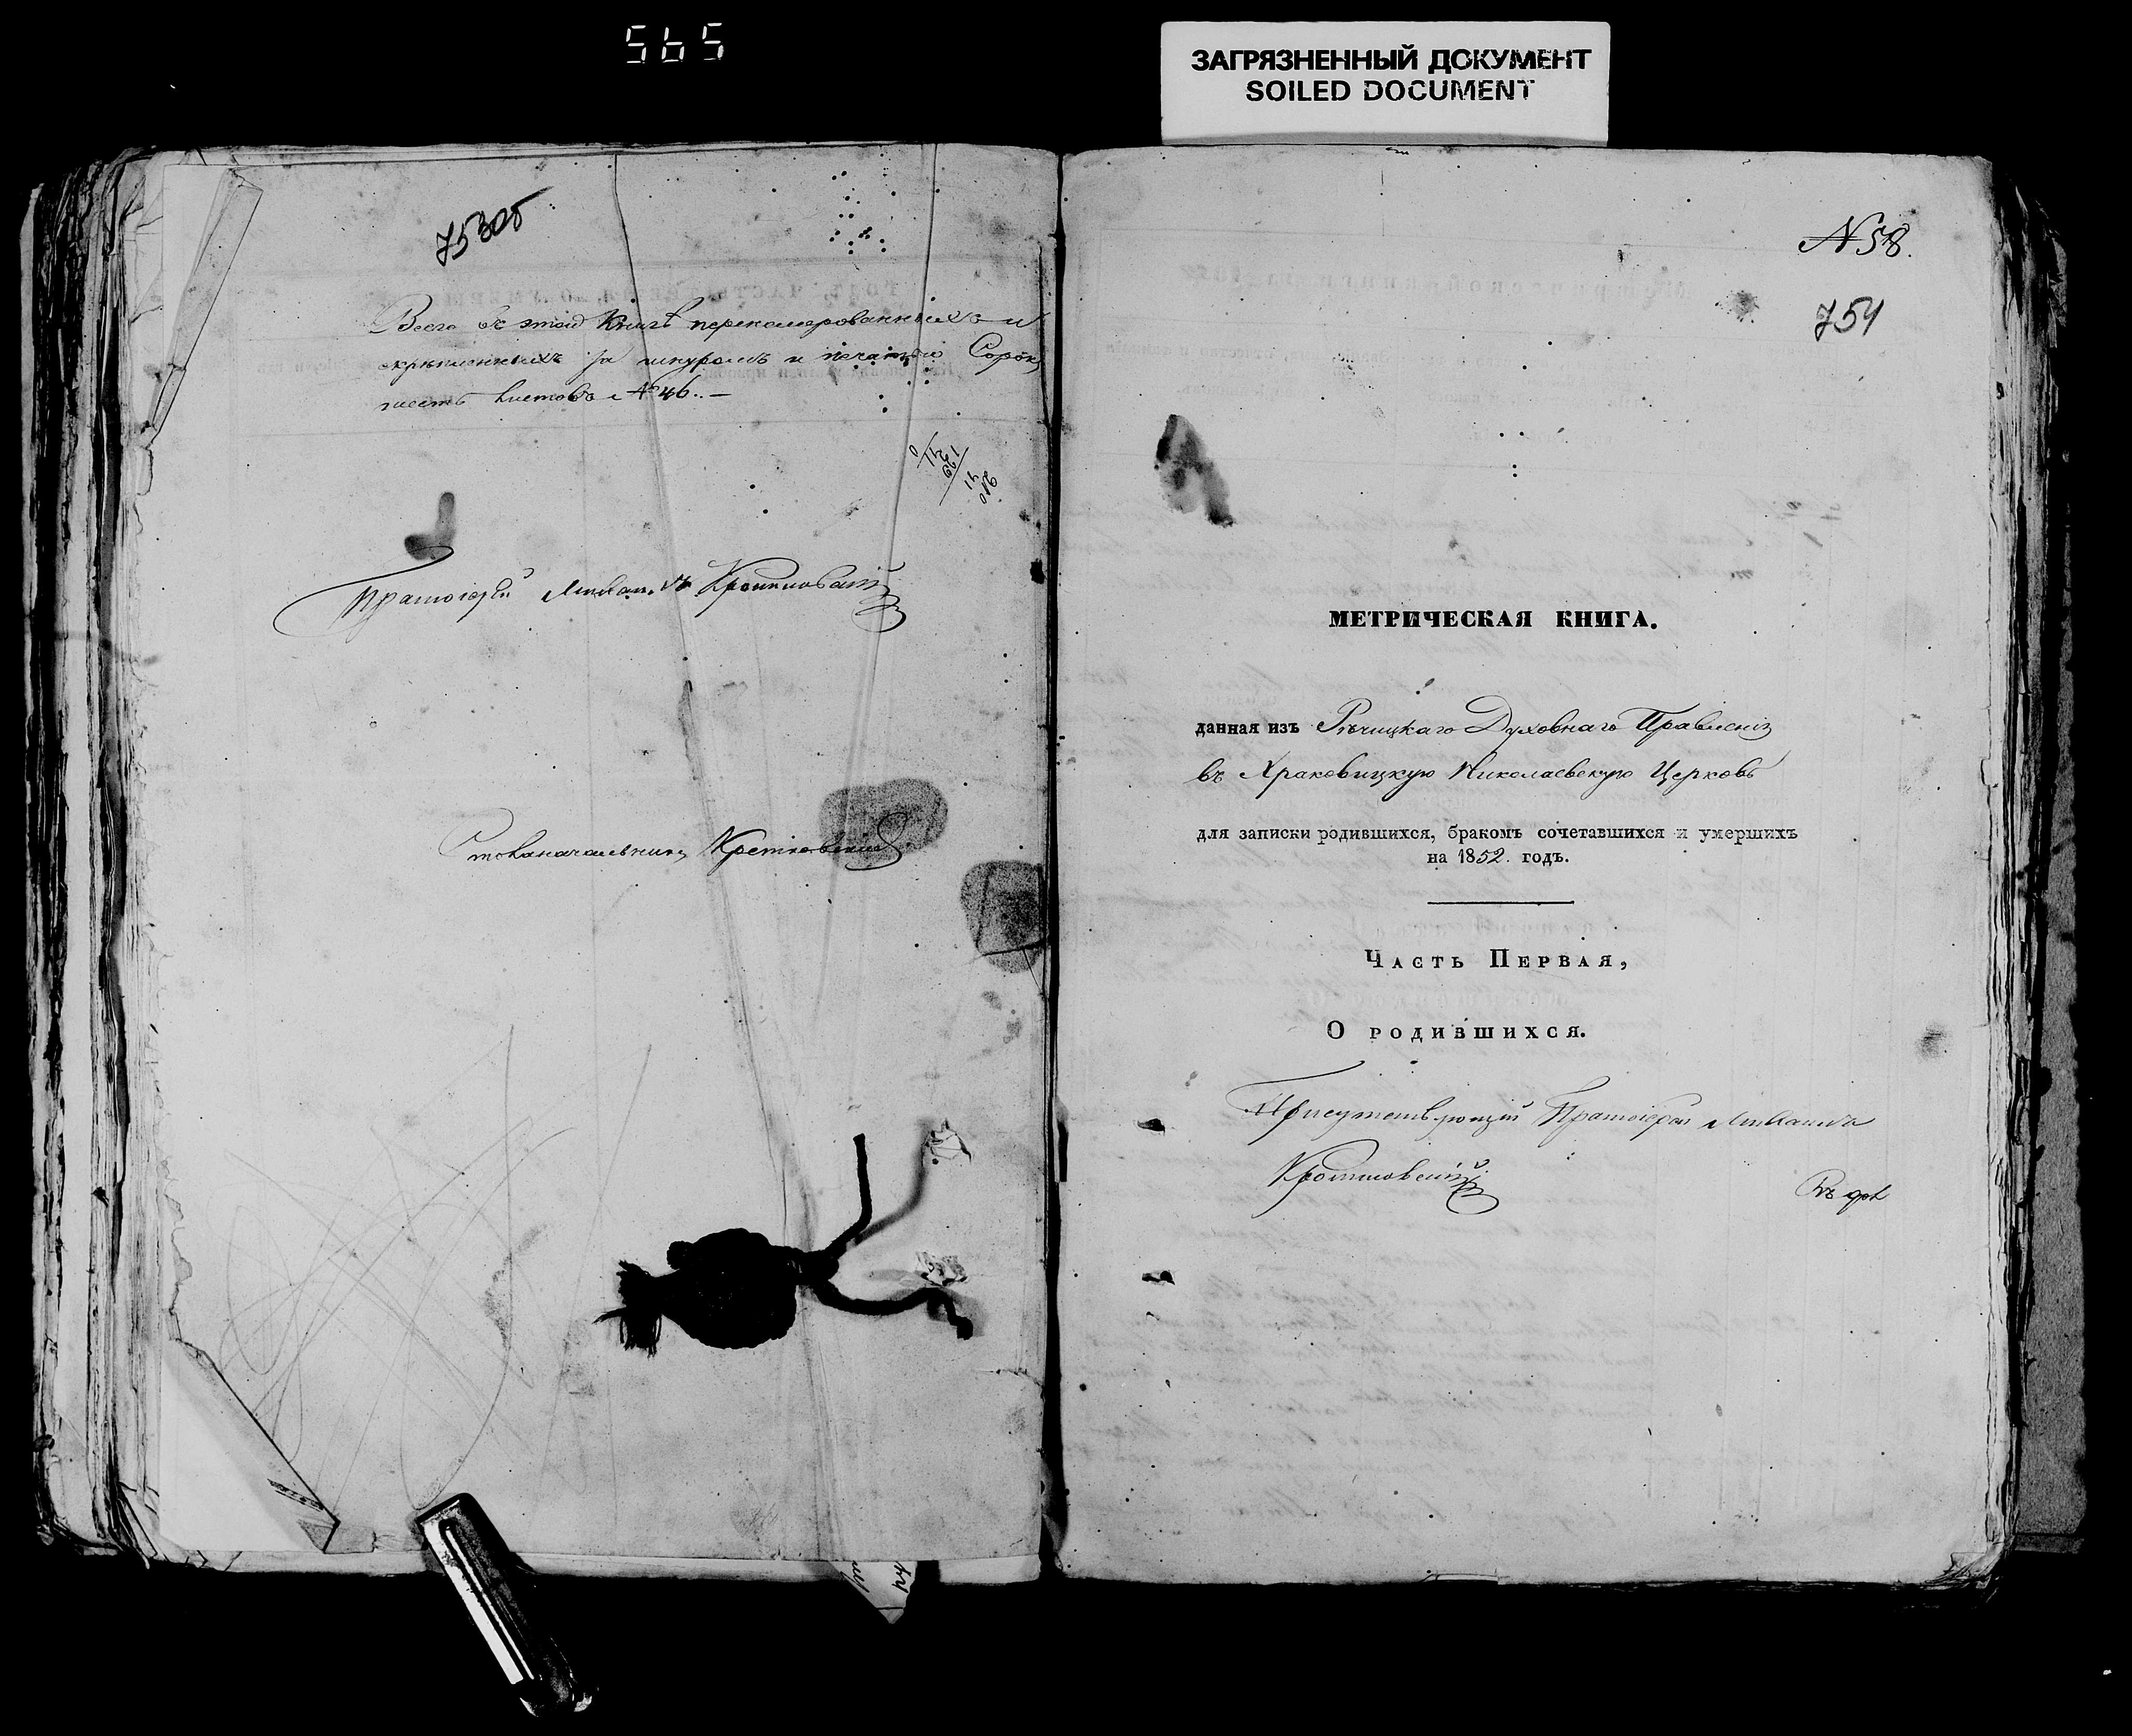 565
ЗАГРЯЗНЕННЫЙ ДОКУМЕНТ
SOILED DOCUMENT
753об
Всего въ этой Книгѣ перенумерованныхъ и
скрѣпленныхъ за шнуромъ и печатью Сорокъ
шесть листовъ №46.
Протоіерей
Столоначальникъ
N58.
754
МЕТРИЧЕСКАЯ КНИГА.
данная изъ Рѣчицкаго Духовнаго Правленія
въ Храковицкую Николаевскую Церковь
для записки родившихся, бракомъ сочетавшихся и умершихъ
на 1852. годъ.
Часть Первая,
О родившихся.
Присутствующій Протоіерей